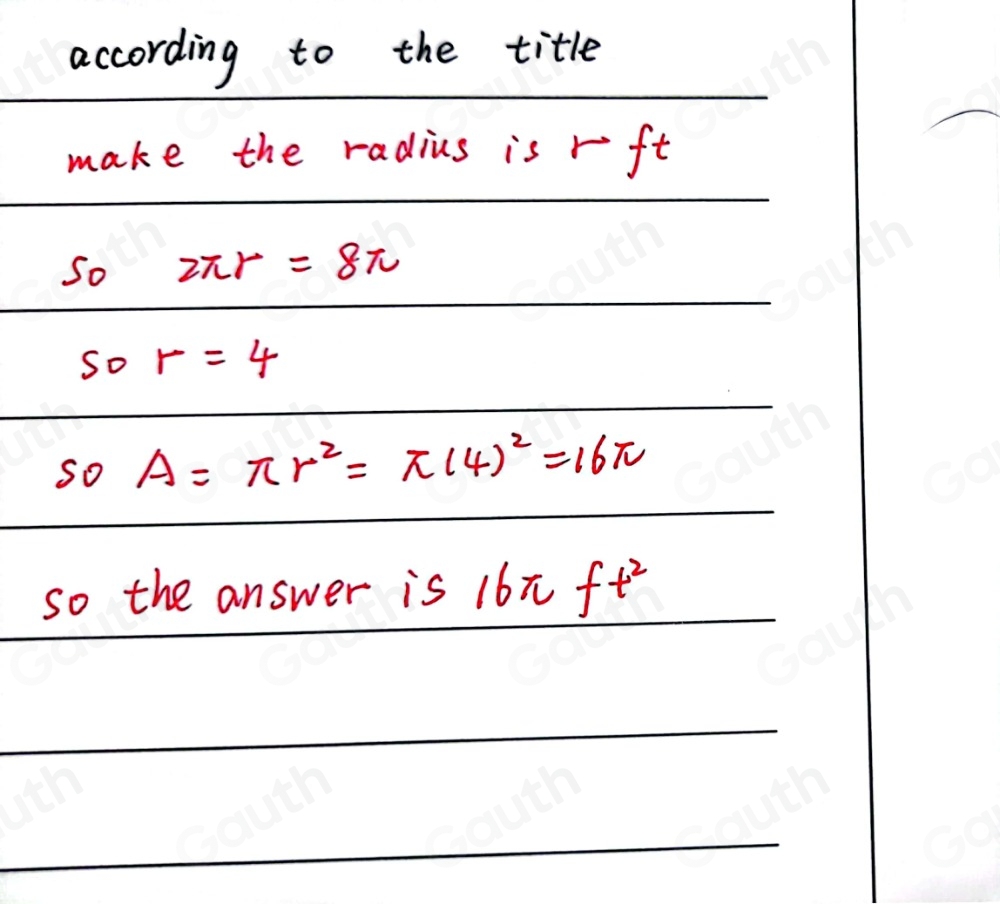 according to the title
make the radius is r ft
so 2πr = 8π
so r = 4
so A = πr² = π(4)² = 16π
so the answer is 16π ft²